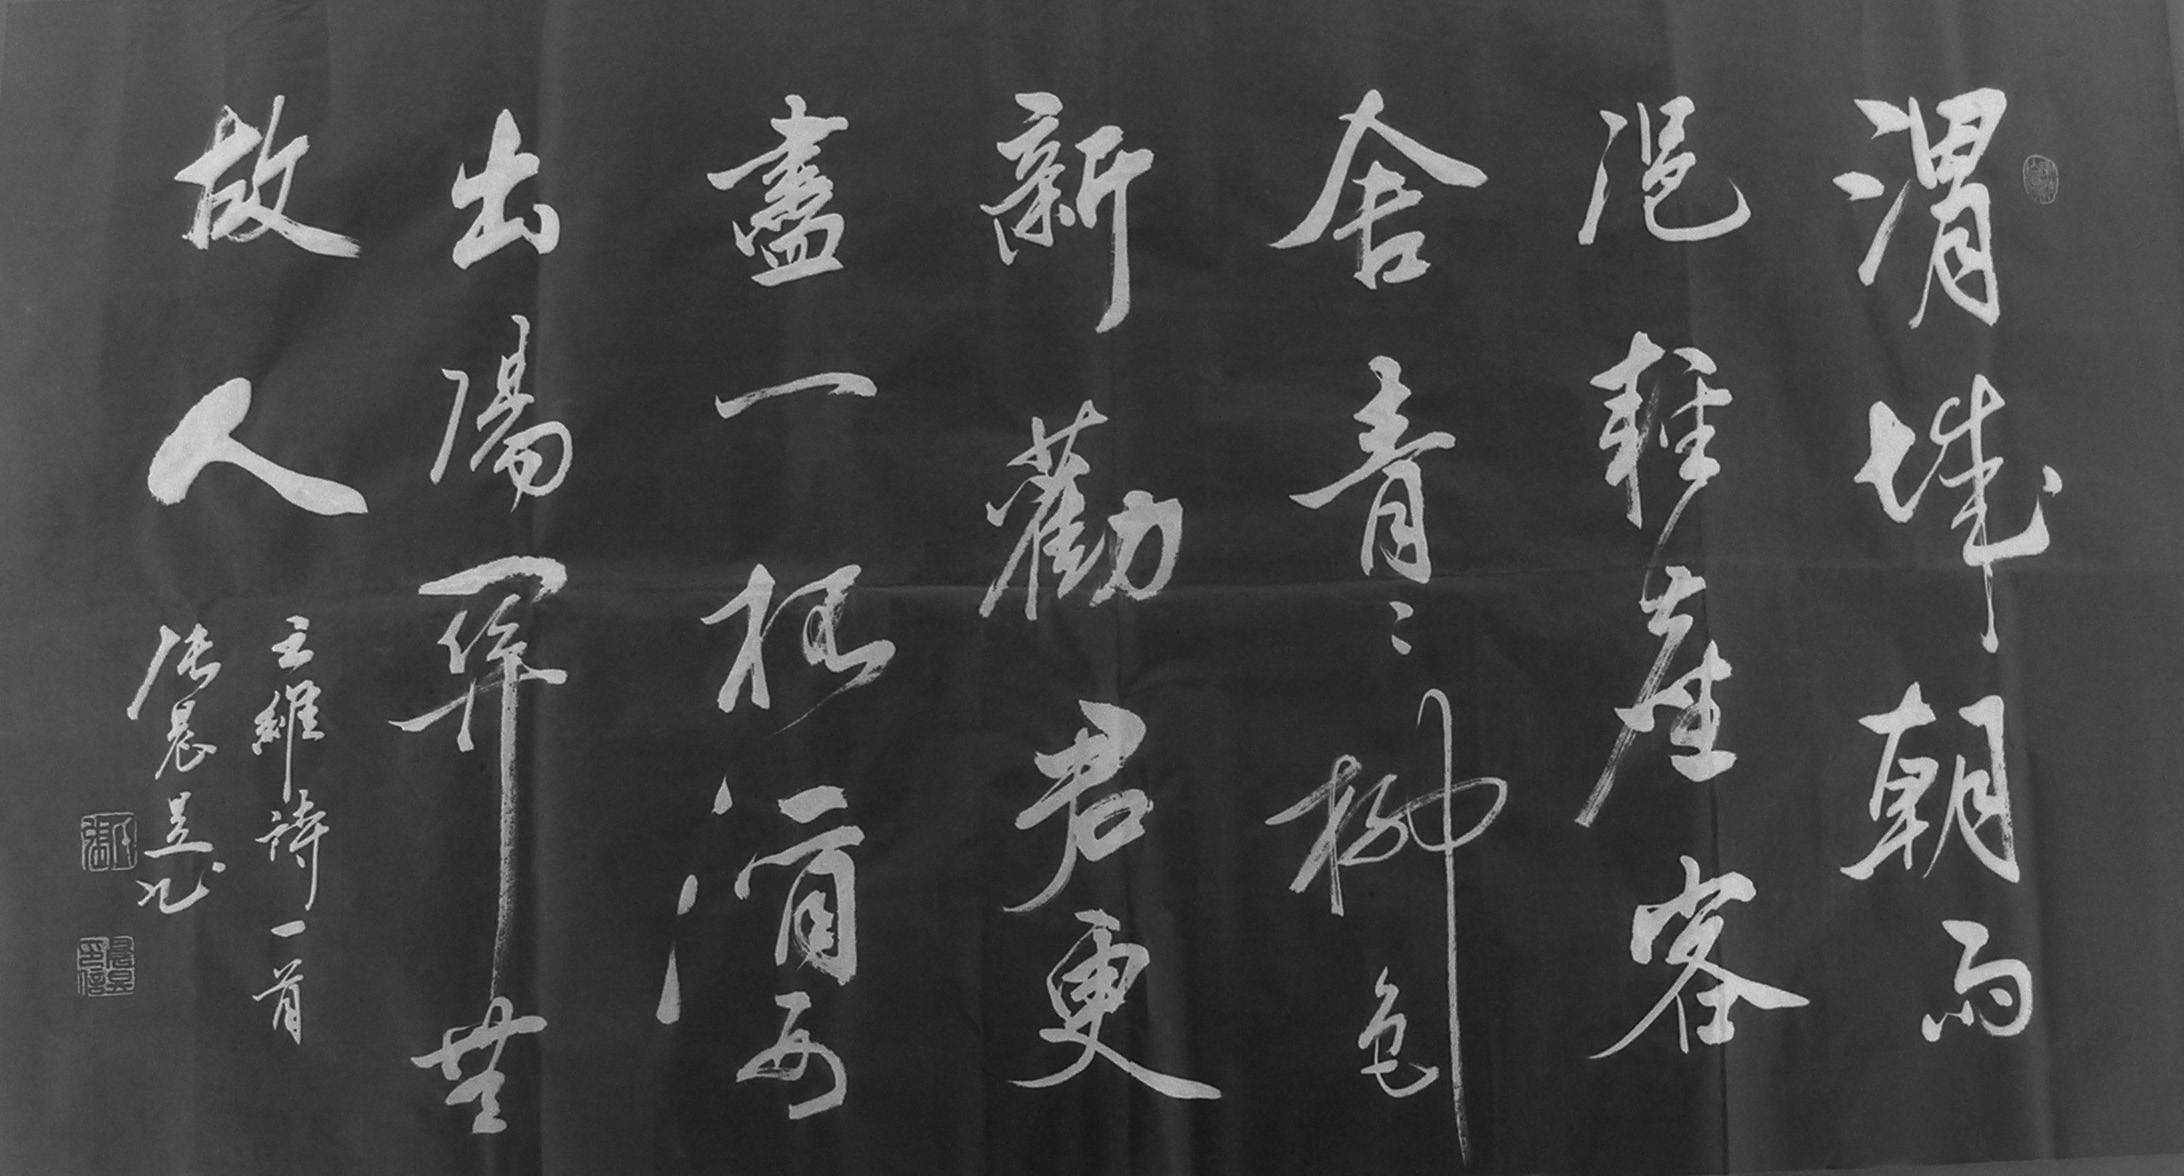 渭城朝雨
浥輕塵客
舍青々柳色
新勸君更
盡一杯酒西
出陽關無
故人
王維詩一首
張晨